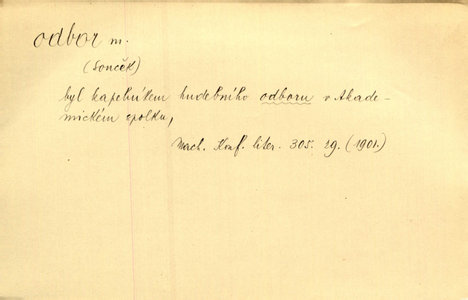 odbor m.
(Součék)
byl kapelníkem hudebního odboru v Akade-
mickém spolku,
Mach. Konf. liter. 305. 29. (1901.)